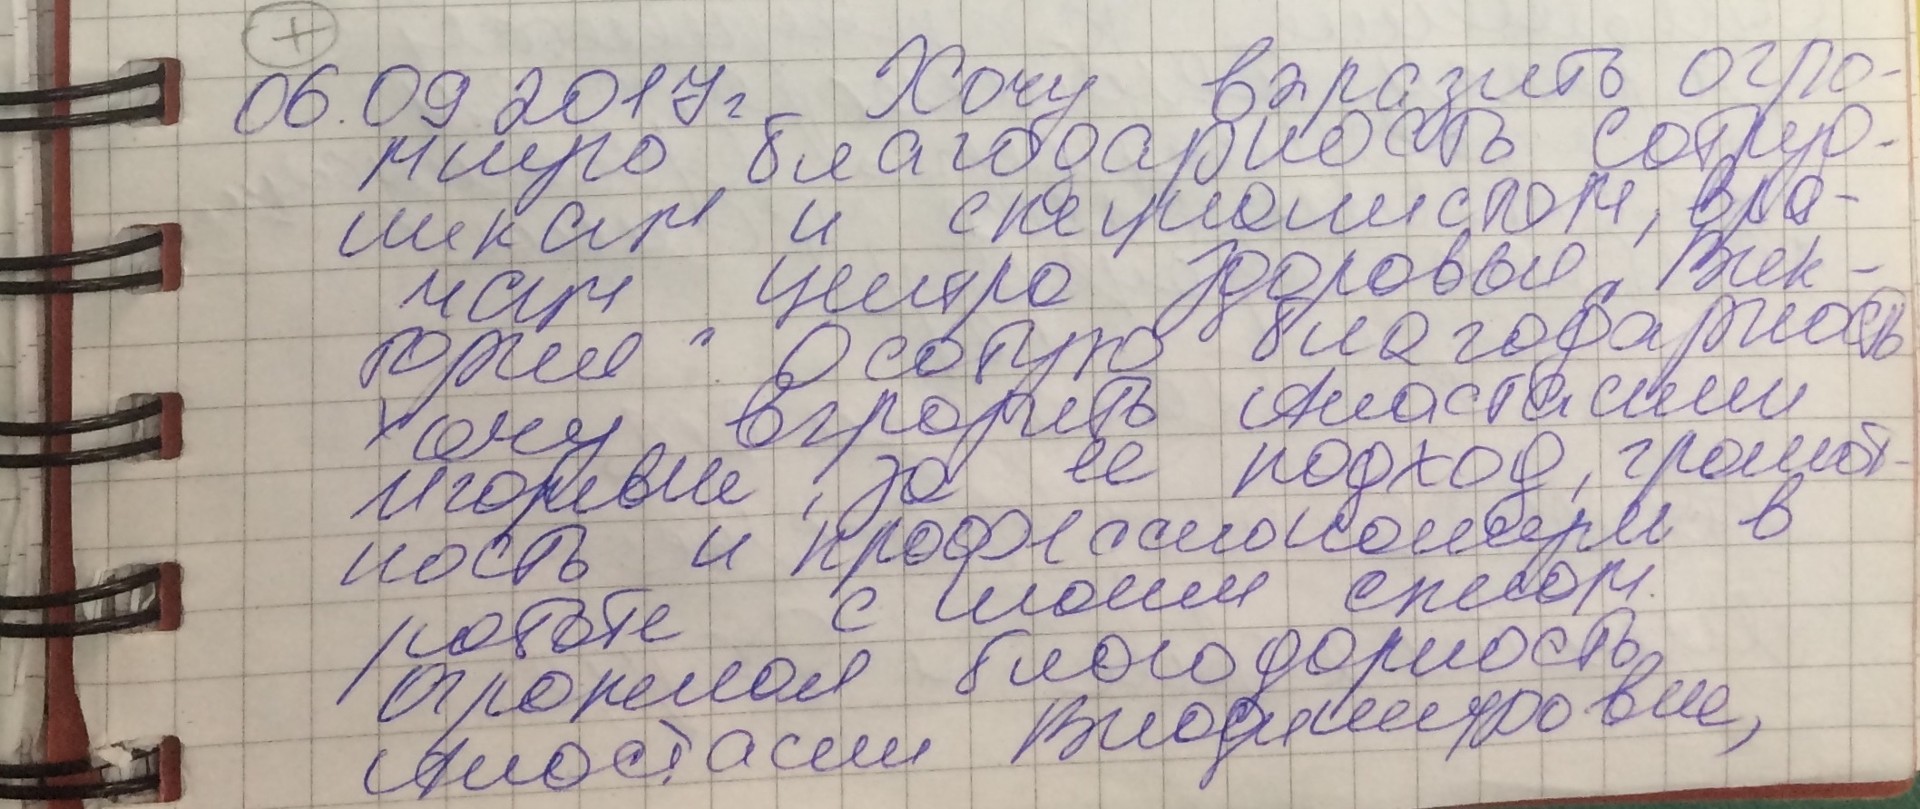 +
06.09.2017г. Хочу выразить огро-
мную благодарность сотруд-
никам и специалистам, вра-
чам центра здоровья Вик-
тория. Особую благодарность
хочу выразить Анастасии
Игоревне, за ее подход, грамот-
ность и профессионализм в
работе с моим сыном.
Огромная благодарность
Анастасии Владимировне,